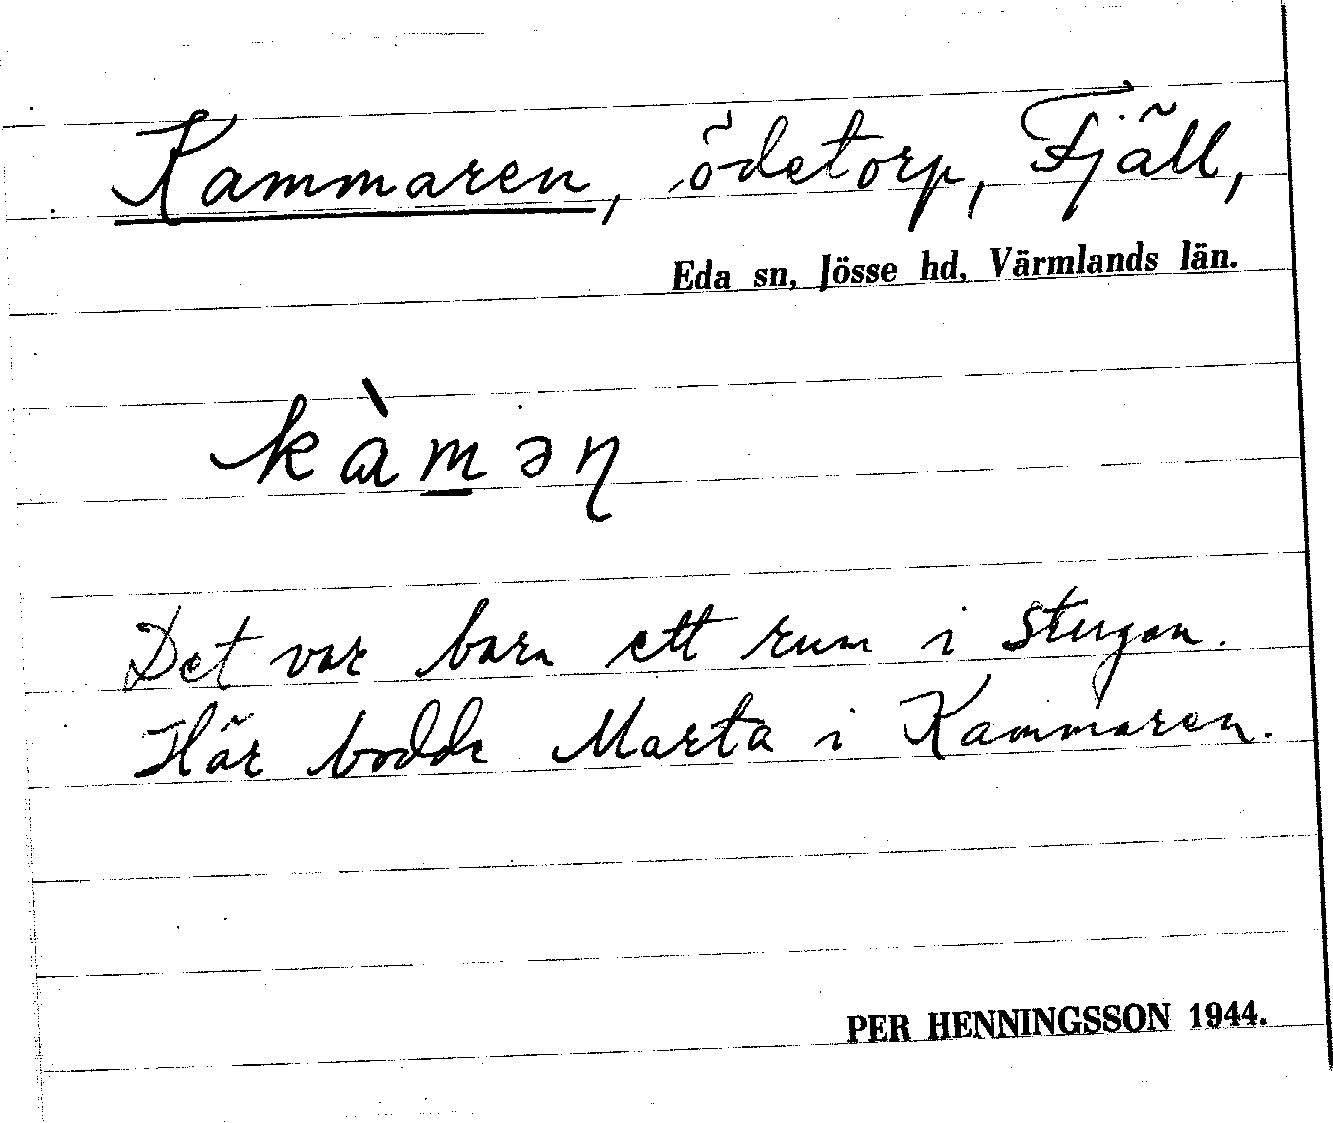 Kammaren, ödetorp, Fjäll,
Eda sn, Jösse hd, Värmlands län.
kàm̲əɳ
Det var bara ett rum i stugan.
Här bodde Marta i Kammaren.
PER HENNINGSSON 1944.